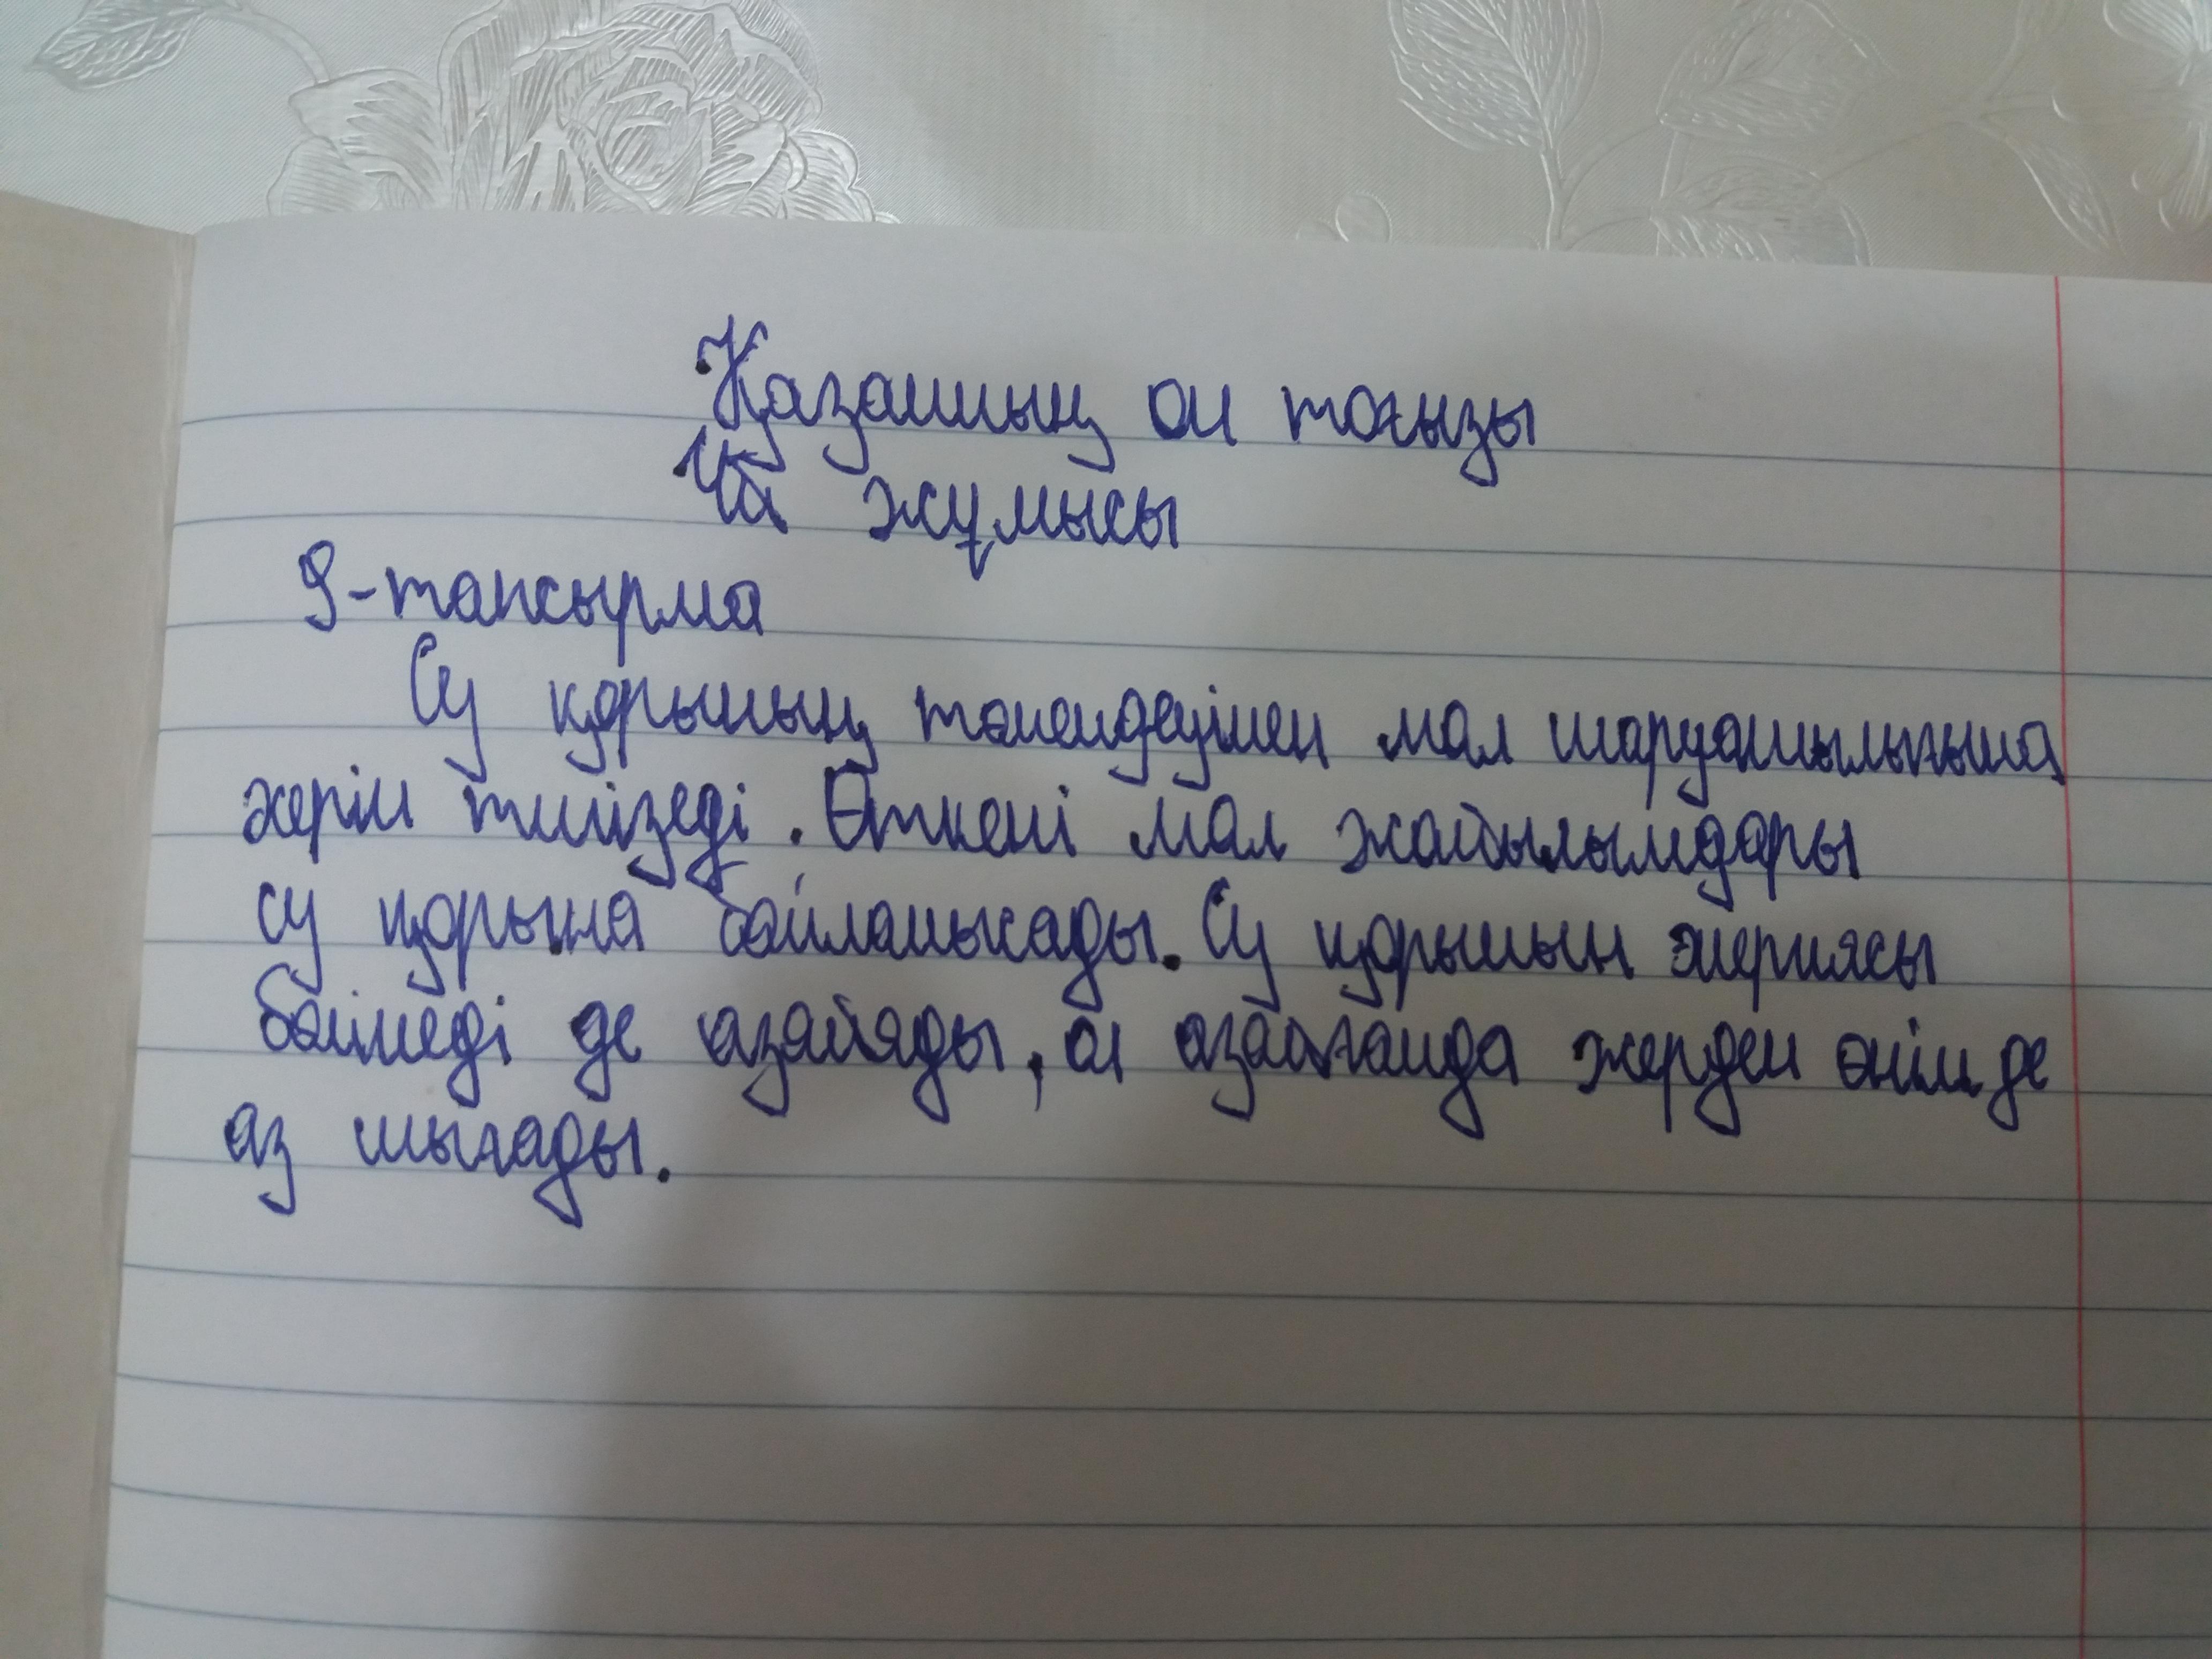 Қазанның он тоғызы
Үй жұмысы
9-тапсырма
Су қорының төмендеуімен мал шаруашылығына
әсерін тигізеді. Өткені мал жайылымдары
су қорына байланысады. Су қорының
де азайяды, ол азайғанда жерден өнім де
аз шығады.